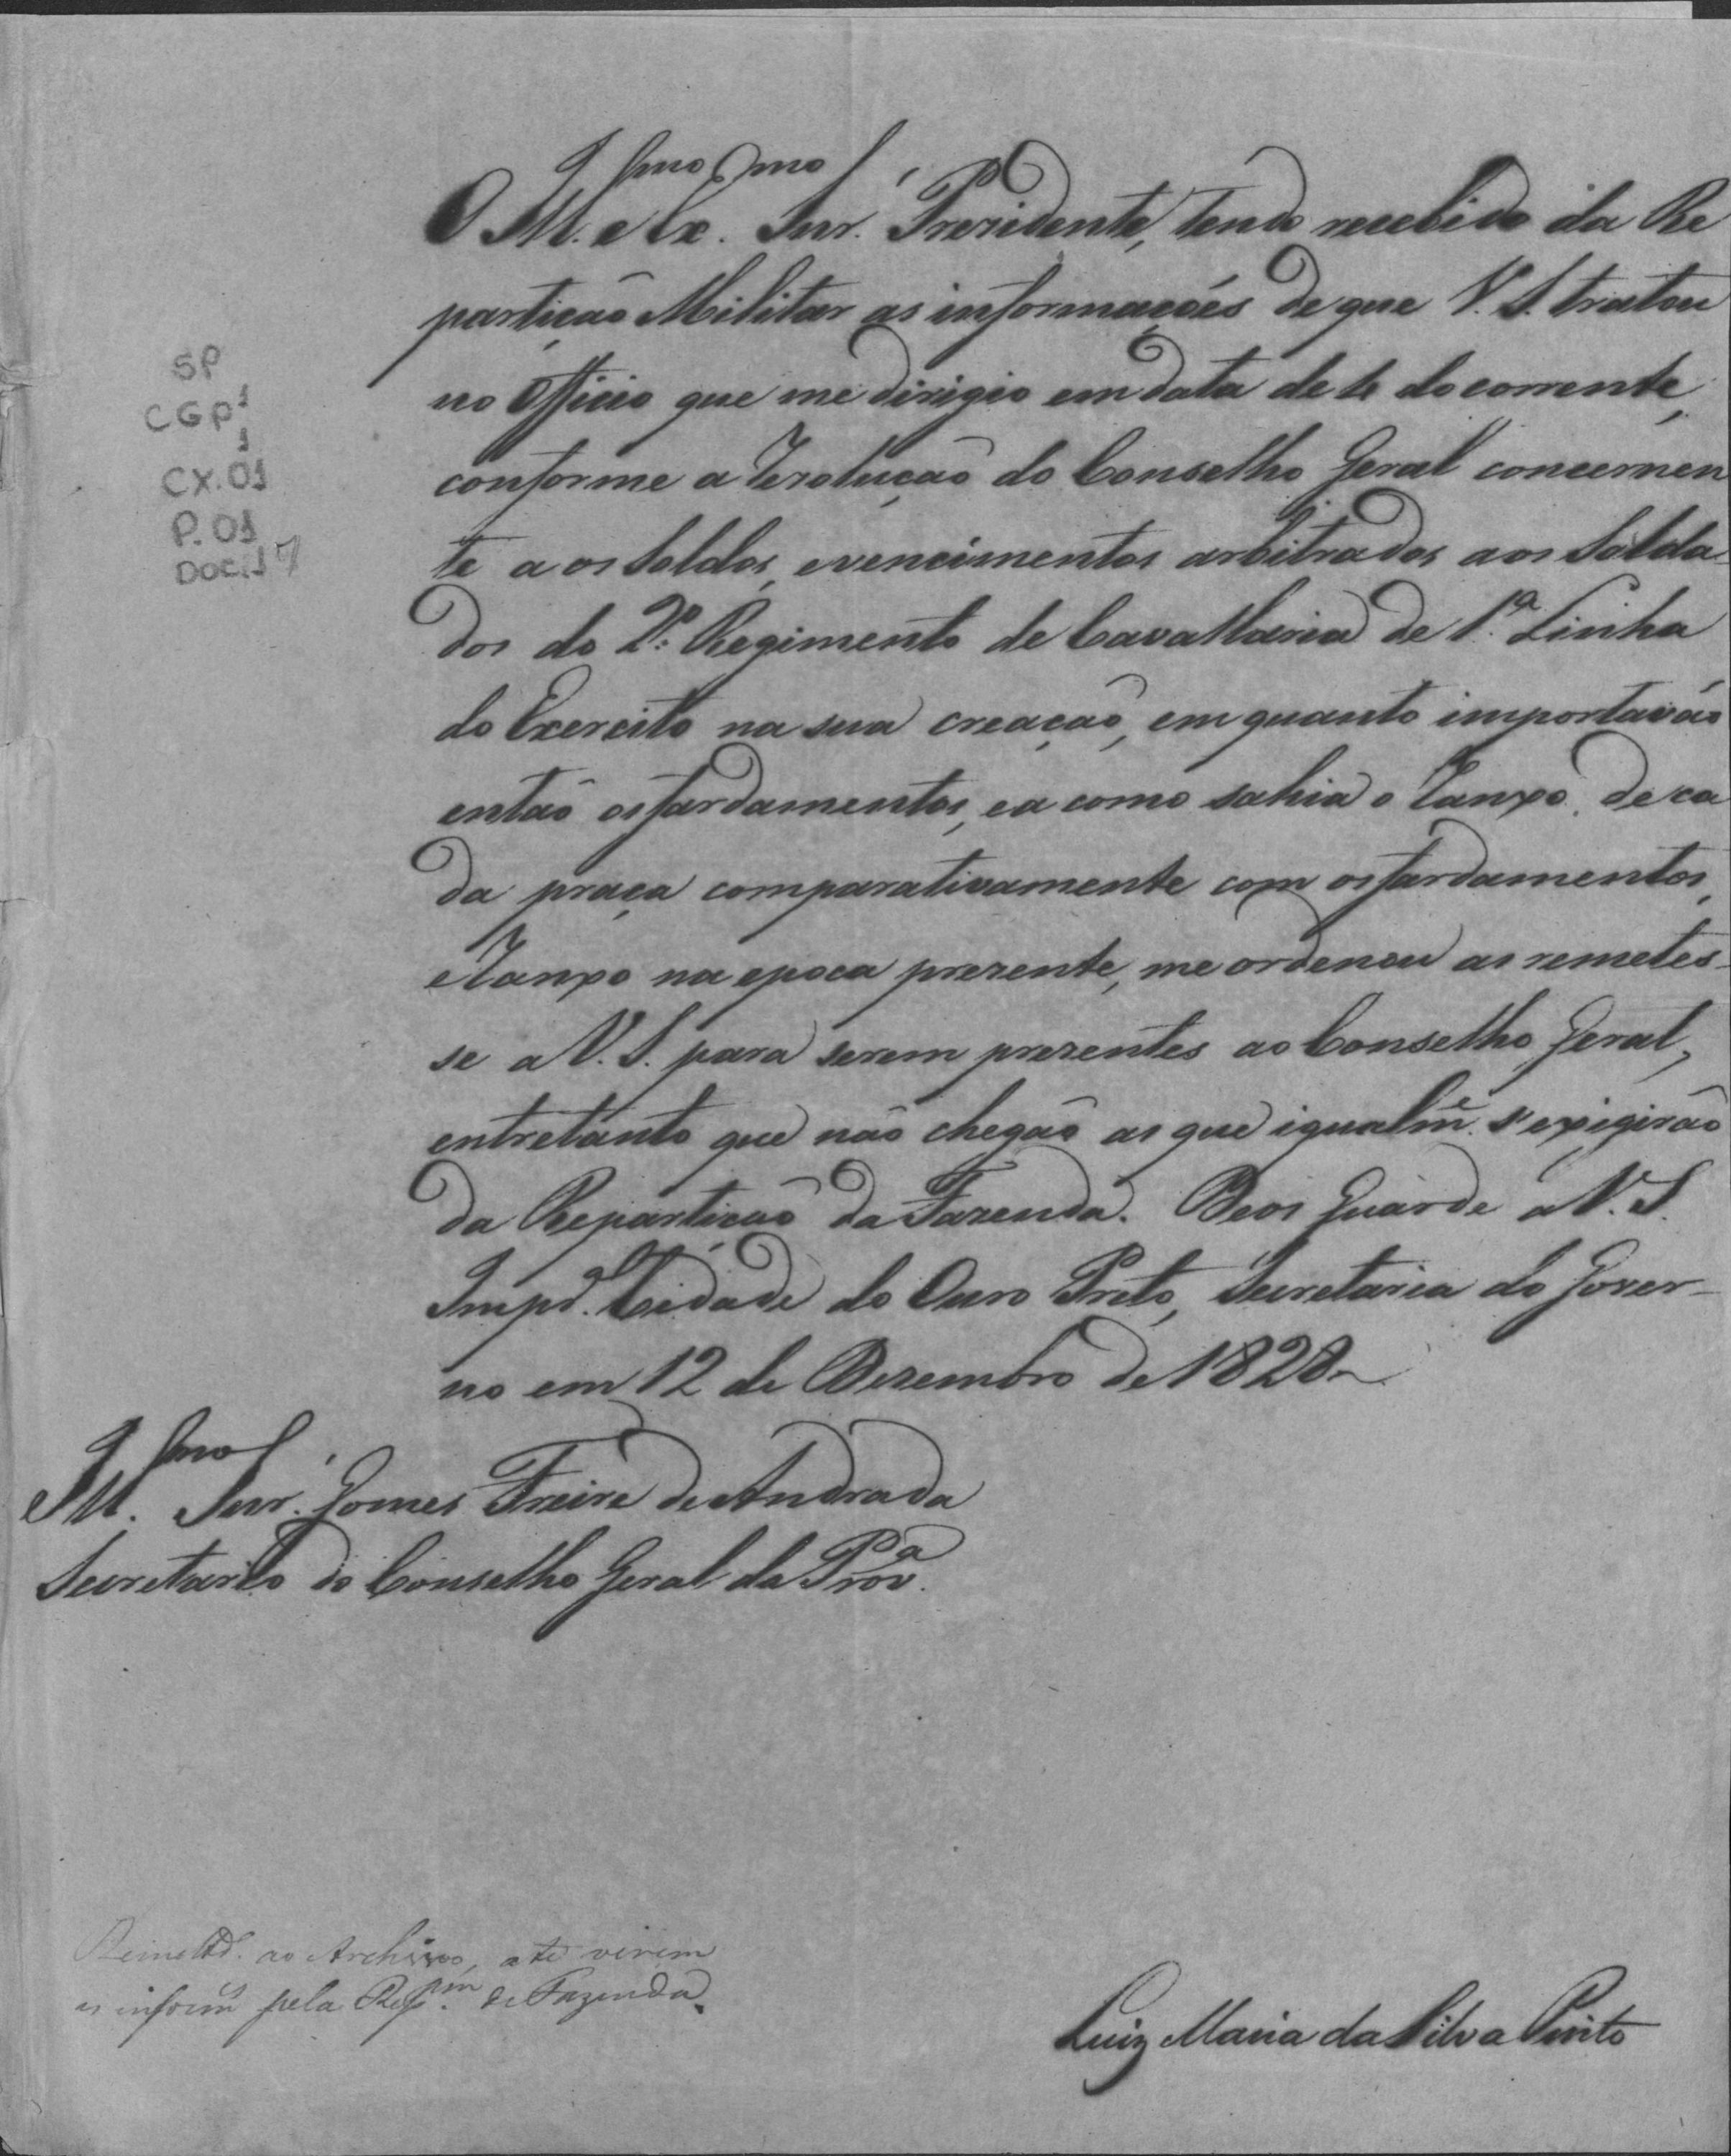 SP
CGP¹
1
CX.01
P.01
Doc.17
O Ill.mo e Ex.mo Snr. Prezidente, tendo recebido da Re
partição Militar as informações de que V. S. tratou
no Officio que me dirigio em data de 4 do corrente,
conforme a rezolução do Conselho Geral concernen
te a os Soldos, e vencimentos arbitrados aos Solda
dos do 2º Regimento de Cavallaria de 1ª Linha
do Exercito na sua creação, em quanto importavão
então os fardamentos, e a como sahia o ranxo de ca
da praça comparativamente com os fardamentos,
e ranxo na epoca prezente, me ordenou as remetes-
se a V. S. para serem prezentes ao Conselho Geral,
entretanto que não chegão as que igualm.e s'exigirão
da Repartição da Fazenda. Deos Guarde a V. S.
Imp.l Cidade do Ouro Preto, Secretaria do Gover-
no em 12 de Dezembro de 1828
Ill.mo Snr. Gomes Freire de Andrada
Secretario do Conselho Geral da Prov.a
Remettd. ao Archivo, até virem
as inform.s pela Rep.am de Fazenda.
Luiz Maria da Silva Pinto